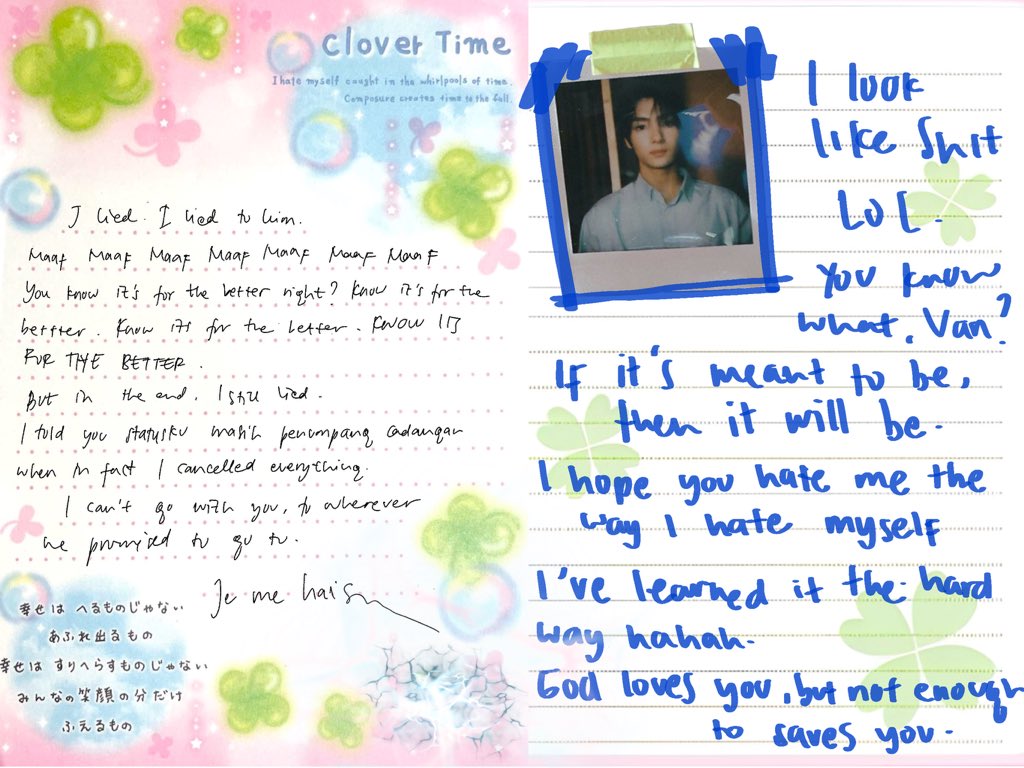 Clover Time
I hate myself caught in the whirlpools of time.
Composure creates time to the full.
I lied. I lied to him.
Maaf Maaf Maaf Maaf Maaf Maaf Maaf
You know it's for the better right? Know it's for the
bettter. Know it's for the better. KNOW ITS
FOR THE BETTER.
But in the end, I still lied.
I told you statusku masih penumpang cadangan
when in fact I cancelled everything.
I can't go with you, to wherever
we promised to go to.
Je me hais
幸せは へるものじゃない
あふれ出るもの
幸せは すりへらすものじゃない
みんなの笑顔の分だけ
ふえるもの
I look
like shit
LOL.
You know
what, Van?
If it's meant to be,
then it will be.
I hope you hate me the
way I hate myself
I've learned it the hard
way hahah.
God loves you, but not enough
to saves you.